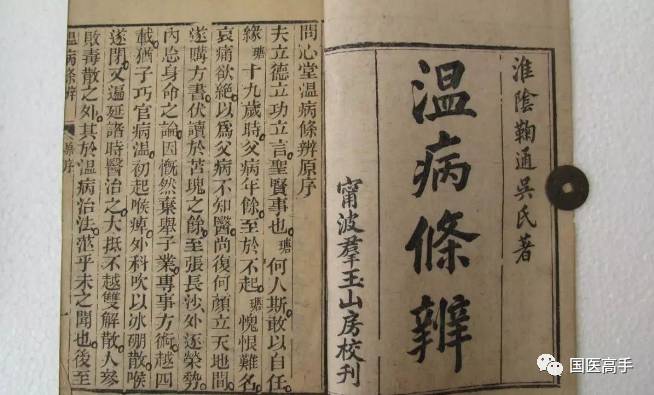 淮陰鞠通吳氏著
温病條辨
甯波羣玉山房校刊
問心堂溫病條辨原序
夫立德立功立言聖賢事也。瑭何人斯敢以自任。
緣瑭十九歲時父病年餘至於不起。瑭愧恨難名。
哀痛欲絕以爲父病不知醫尚復何顏立天地間。
遂購方書伏讀於苫塊之餘至張長沙外逐榮勢。
內忘身命之論因慨然棄舉子業。專事方術。越四
載猶子巧官病溫。初起喉痺。外科吹以冰硼散。喉
遂閉。又遍延諸時醫治之大抵不越雙解散人參
敗毒散之外。其於溫病治法。茫乎未之聞也。後至
溫病條辨
原序
国医高手